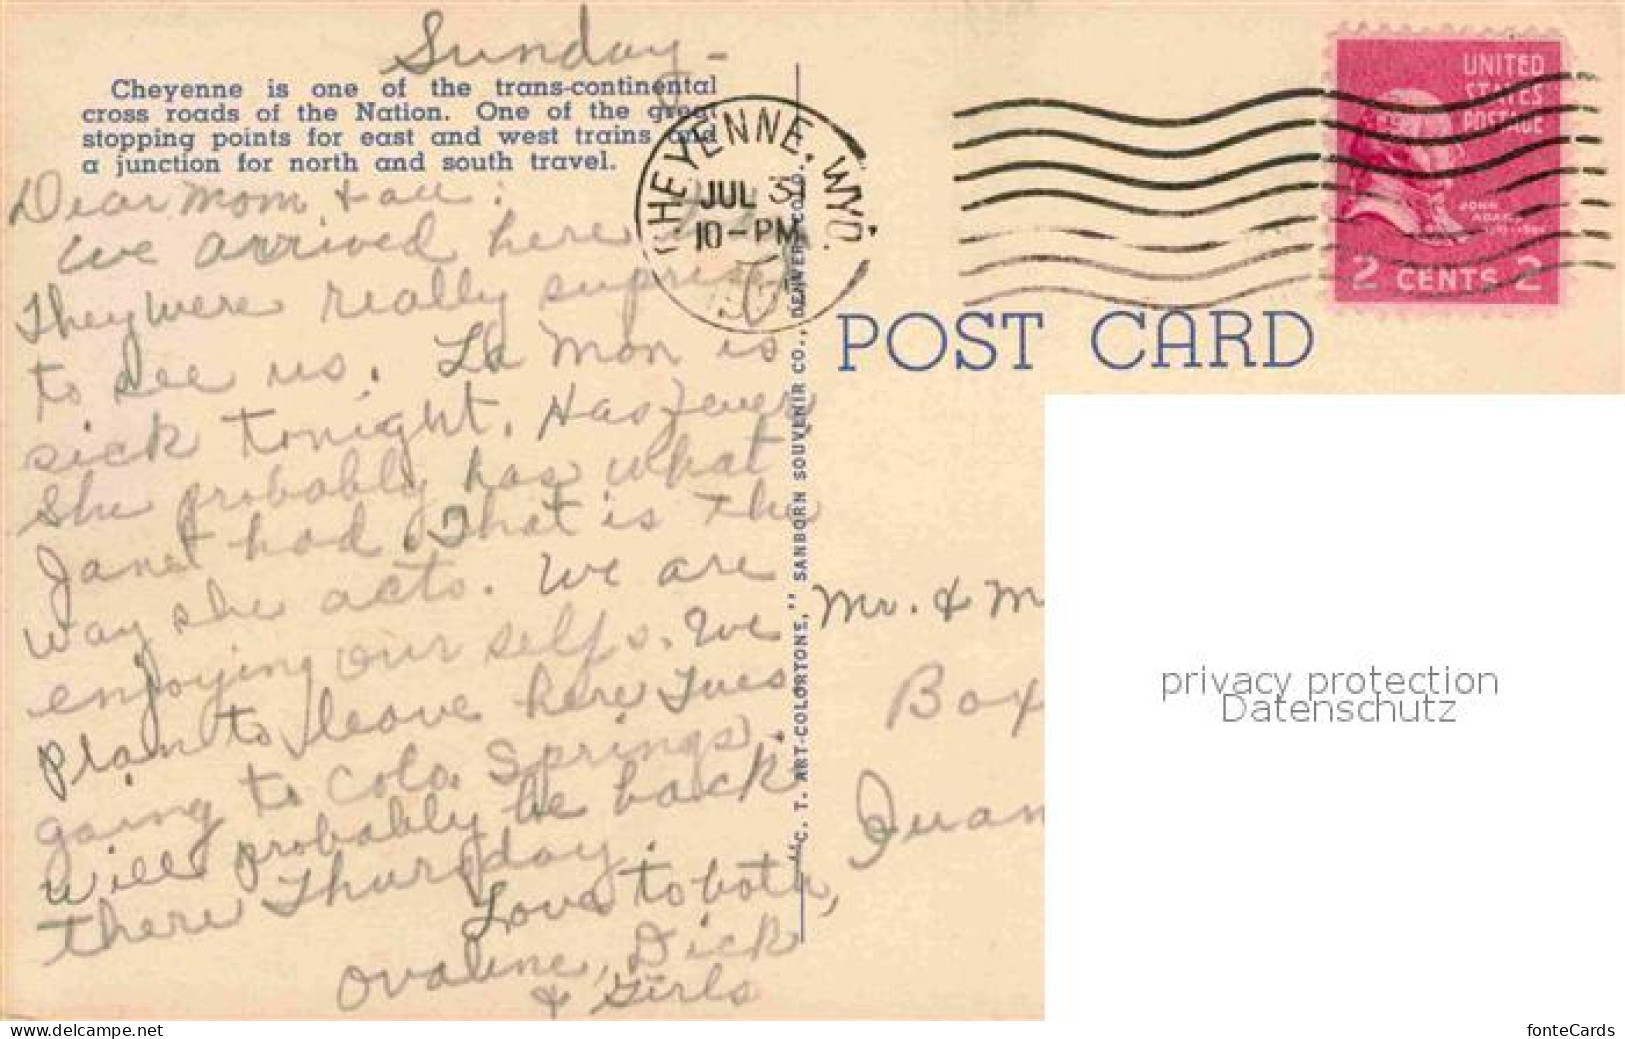 Sunday -
Cheyenne is one of the trans-continental
cross roads of the Nation. One of the great
stopping points for east and west trains and
a junction for north and south travel.
Dear Mom & all:
We arrived here
They were really suprised
to see us. La Mon is
sick tonight. Has fever,
She probably has what
Janet had. That is the
way she acts. We are
enjoying our selfs. We
plan to leave here Tues
going to Colo. Springs.
will probably be back
there Thursday.
Love to both,
Ovaline, Dick
& Girls
CHEYENNE, WYO.
JUL 31
10-PM
"C. T. ART-COLORTONE," SANBORN SOUVENIR CO., DENVER, COLO.
UNITED
STATES
POSTAGE
JOHN
ADAMS
2 CENTS 2
POST CARD
Mr. & M
Box
privacy protection
Datenschutz
www.delcampe.net
fonteCards